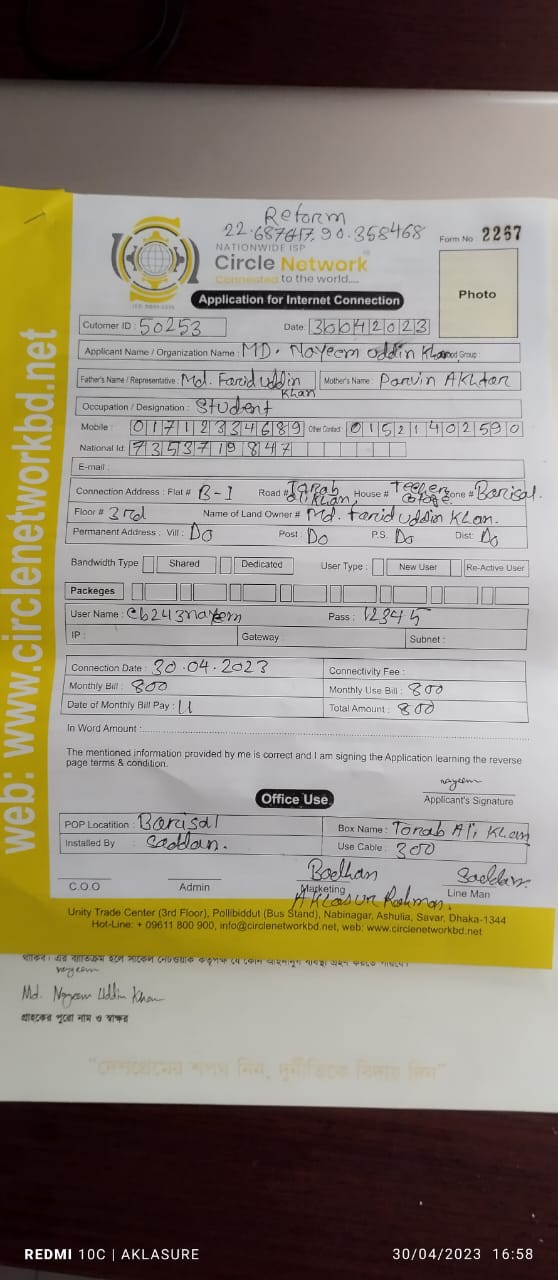 Reform
22.687617, 90.358468
Form No : 2267
NATIONWIDE ISP
Circle Network
Connected to the world....
Photo
Application for Internet Connection
Cutomer ID : 50253 Date: 30042023
Applicant Name / Organization Name : MD. Nayeem uddin Khan
Father's Name / Representative : Md. Farid uddin Khan Mother's Name : Parvin AKhtar
Occupation / Designation : Student
Mobile : 01712334689 Other Contact : 01521402590
National Id: 7353719847
E-mail :
Connection Address : Flat # B-1 Road # Khan, House # Zone # Barisal.
Floor # 3rd Name of Land Owner # Md. Farid uddin Khan.
Permanent Address : Vill : Do Post : Do P.S. Do Dist: Do
Bandwidth Type Shared Dedicated User Type : New User Re-Active User
Packeges
User Name : cb243nayem Pass : 12345
IP : Gateway : Subnet :
Connection Date : 30.04.2023 Connectivity Fee :
Monthly Bill : 800 Monthly Use Bill : 800
Date of Monthly Bill Pay : Total Amount : 800
In Word Amount :
The mentioned information provided by me is correct and I am signing the Application learning the reverse
page terms & condition.
nayeem
Applicant's Signature
Office Use
POP Locatition : Barisal Box Name : Tonab Ali Khan
Installed By : Saddan. Use Cable : 300
Saddan.
C.O.O Admin Marketing Line Man
AKlasur Rahman.
Unity Trade Center (3rd Floor), Pollibiddut (Bus Stand), Nabinagar, Ashulia, Savar, Dhaka-1344
Hot-Line: + 09611 800 900, info@circlenetworkbd.net, web: www.circlenetworkbd.net
web: www.circlenetworkbd.net
nayeem
Md. Nayeem Uddin Khan
গ্রাহকের পুরো নাম ও স্বাক্ষর
"দেশপ্রেমের শপথ নিন, দুর্নীতিকে বিদায় দিন"
REDMI 10C | AKLASURE 30/04/2023 16:58